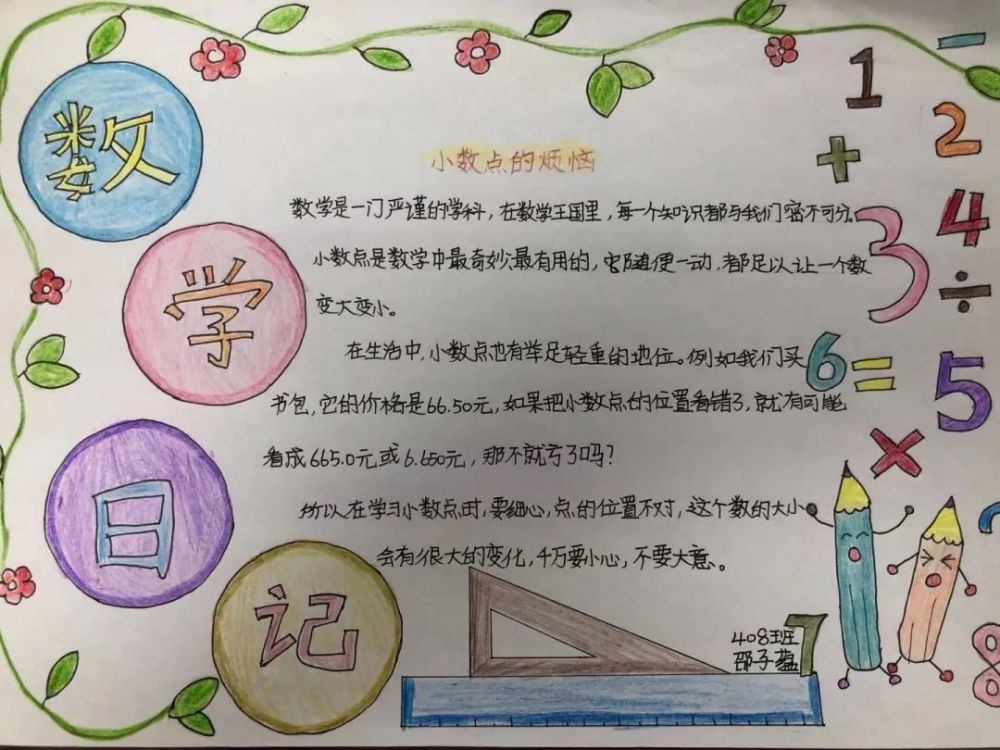 数
学
日
记
小数点的烦恼
数学是一门严谨的学科，在数学王国里，每一个知识都与我们密不可分。
小数点是数学中最奇妙最有用的，它随便一动，都足以让一个数
变大变小。
在生活中，小数点也有举足轻重的地位。例如我们买
书包，它的价格是66.50元，如果把小数点的位置看错了，就有可能
看成665.0元或6.650元，那不就亏了吗？
所以在学习小数点时，要细心，点的位置不对，这个数的大小
会有很大的变化，千万要小心，不要大意。
408班
邵子蕴
1
－
2
＋
3
4
÷
6
＝
5
×
7
8